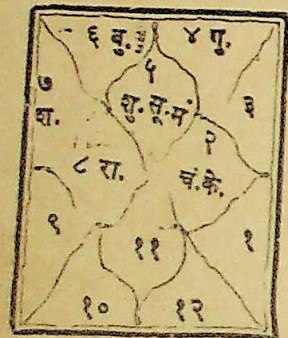 ६ बु. ४ गु.
५
७ शु. सू. मं ३
श. २
८ रा. चं. के.
९ ११ १
१० १२